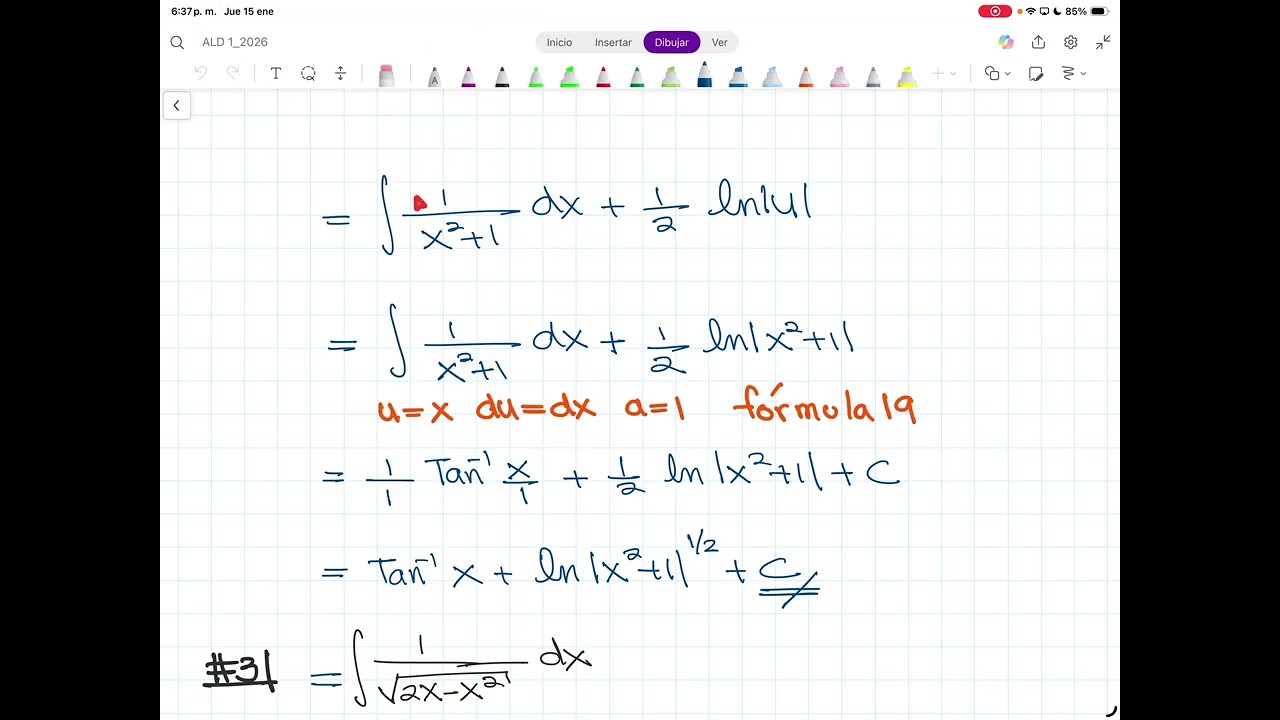 6:37 p. m. Jue 15 ene 85%
ALD 1_2026 Inicio Insertar Dibujar Ver
T A
= ∫ 1/(x²+1) dx + 1/2 ln|u|
= ∫ 1/(x²+1) dx + 1/2 ln|x²+1|
u=x du=dx a=1 fórmula 19
= 1/1 Tan⁻¹ x/1 + 1/2 ln|x²+1| + C
= Tan⁻¹ x + ln|x²+1|^1/2 + C
#31 = ∫ 1/√(2x-x²) dx